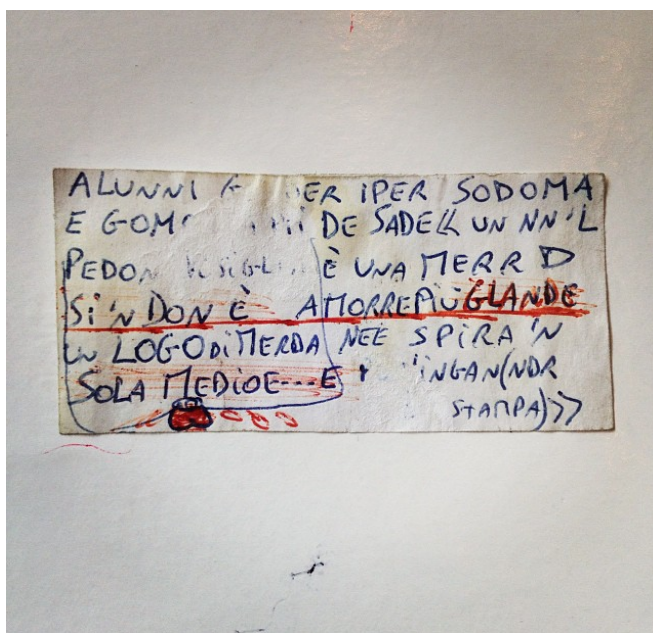 ALUNNI ER IPER SODOMA
E GOM DE SADE UN NN'L
PEDO È UNA MERR D
Si 'N DON È AMORREPIÙ GLANDE
UN LOGO Di MERDA NEE SPIRA 'N
SOLA MEDIOE---E 'NGAN(NDR
STAMPA)>>